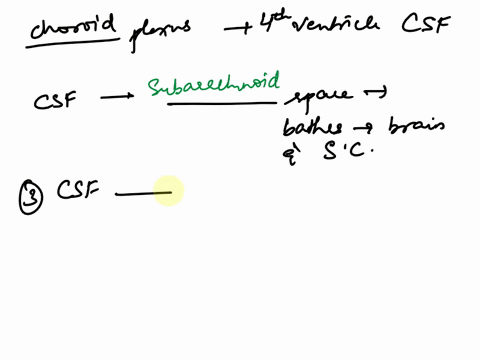 choroid plexus → 4th ventricle CSF
CSF → Subarechnoid space →
bathes → brain
& S.C.
③ CSF —